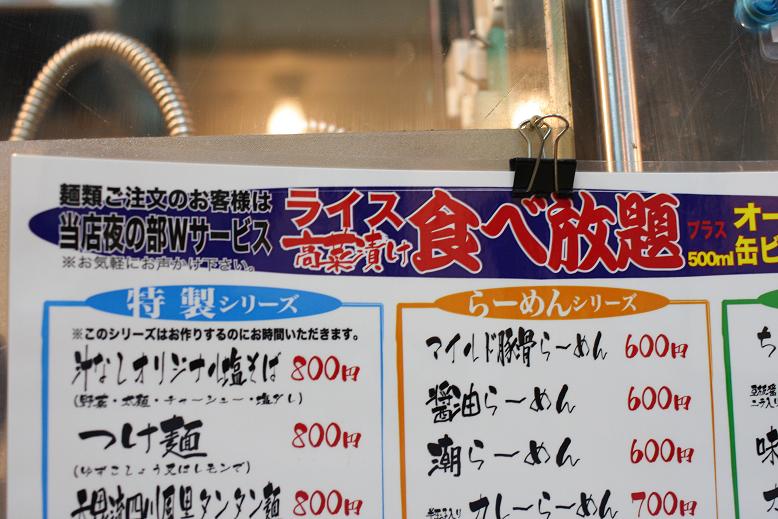 麺類ご注文のお客様は
当店夜の部Wサービス
※お気軽にお声かけ下さい。
ライス
高菜漬け
食べ放題
プラス
500ml
オー
缶ビ
特製シリーズ
※このシリーズはお作りするのにお時間いただきます。
汁なしオリジナル塩そば 800円
(野菜・太麺・チャーシュー・塩ダレ)
つけ麺 800円
(ゆずこしょう又はレモンで)
四川風黒タンタン麺 800円
らーめんシリーズ
マイルド豚骨らーめん 600円
醤油らーめん 600円
潮らーめん 600円
カレーらーめん 700円
ち
味